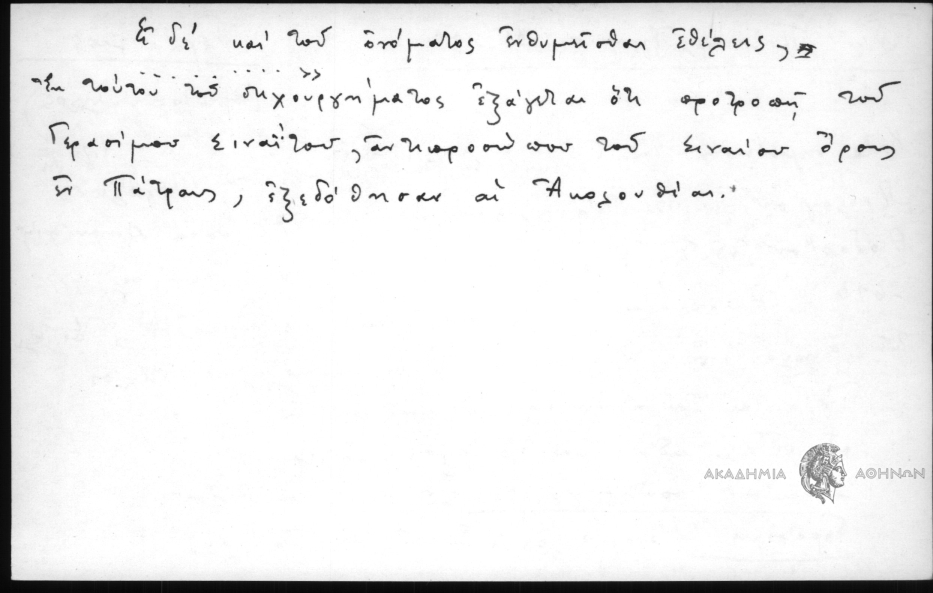 Εἰ δέ καί τοῦ ὀνόματος ἐνθυμεῖσθαι ἐθέλεις,
. . . . . . . . . . »
Ἐκ τούτου τοῦ στιχουργήματος ἐξάγεται ὅτι προτροπῇ τοῦ
Γερασίμου Σιναΐτου, ἀντιπροσώπου τοῦ Σιναίου Ὄρους
ἐν Πάτραις, ἐξεδόθησαν αἱ Ἀκολουθίαι.
ΑΚΑΔΗΜΙΑ ΑΘΗΝΩΝ